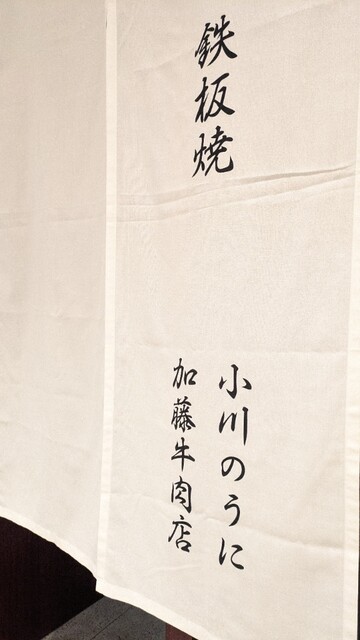 鉄板焼
小川のうに
加藤牛肉店